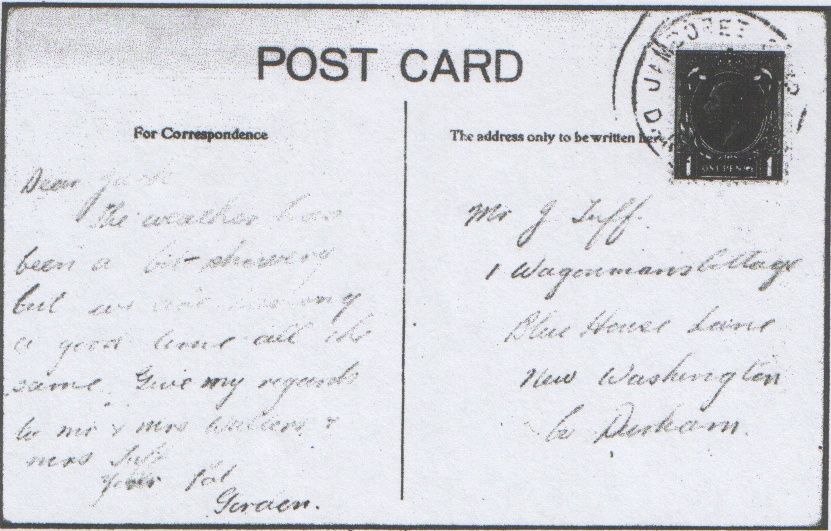 POST CARD
For Correspondence
Dear
The weather has
been a bit showery
but we are having
a good time all the
same. Give my regards
to mr & mrs &
mrs
Your Pal
The address only to be written here
JAMBOREE
ONE PENNY
1 1
Mr J. Tuff.
1 Wagonmans Cottage
Blue House Lane
New Washington
Co Durham.